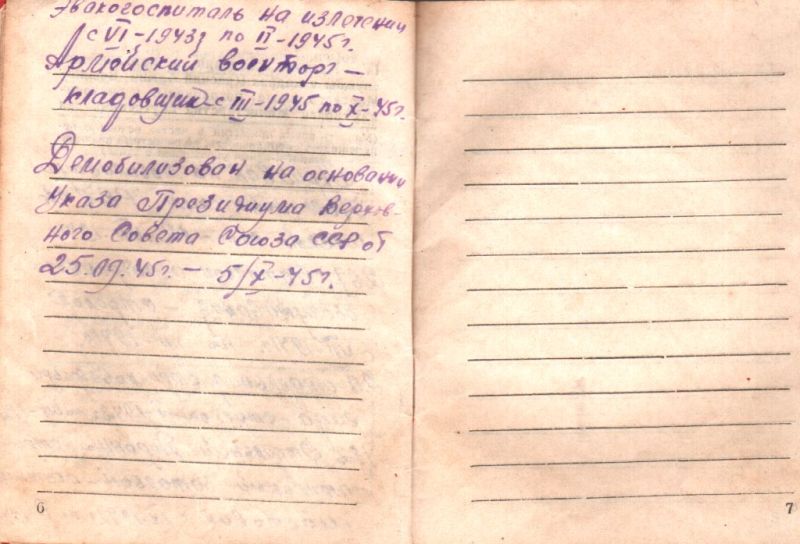 Эвакогоспиталь на излечении
с VI-1943г по II-1945г.
Армейский военторг –
кладовщик с III-1945 по X-45г.
Демобилизован на основании
Указа Президиума Верхов-
ного Совета Союза ССР от
25.09.45г. – 5/X-45г.
6
7